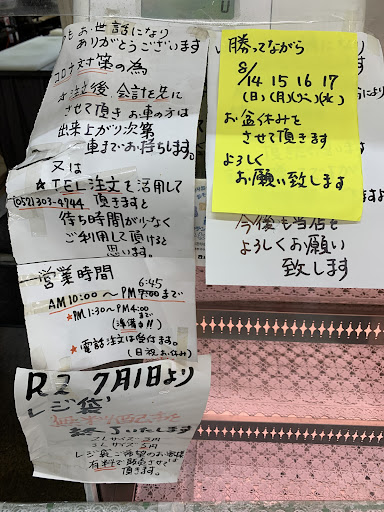 もお世話になり
ありがとうございます
コロナ対策の為
ご注文後 会計を先に
させて頂き お車の方は
出来上がり次第
車までお持ちします。
又は
★TEL注文を活用して
(052)303-4744 頂きますと
待ち時間が少なく
ご利用して頂けると
思います。
営業時間
6:45
AM10:00～PM7:00まで
★PM1:30～PM4:00
まで
(準備中!!)
★電話注文は受付ます。
(日祝お休み)
R2 7月1日より
レジ袋
終了いたします
2Lサイズ 3円
3Lサイズ 5円
レジ袋ご希望のお客様
有料で販売させて
頂きます。
勝手ながら
8/14 15 16 17
(日)(月)(火)(水)
お盆休みを
させて頂きます
よろしく
お願い致します
今後も当店を
よろしくお願い
致します